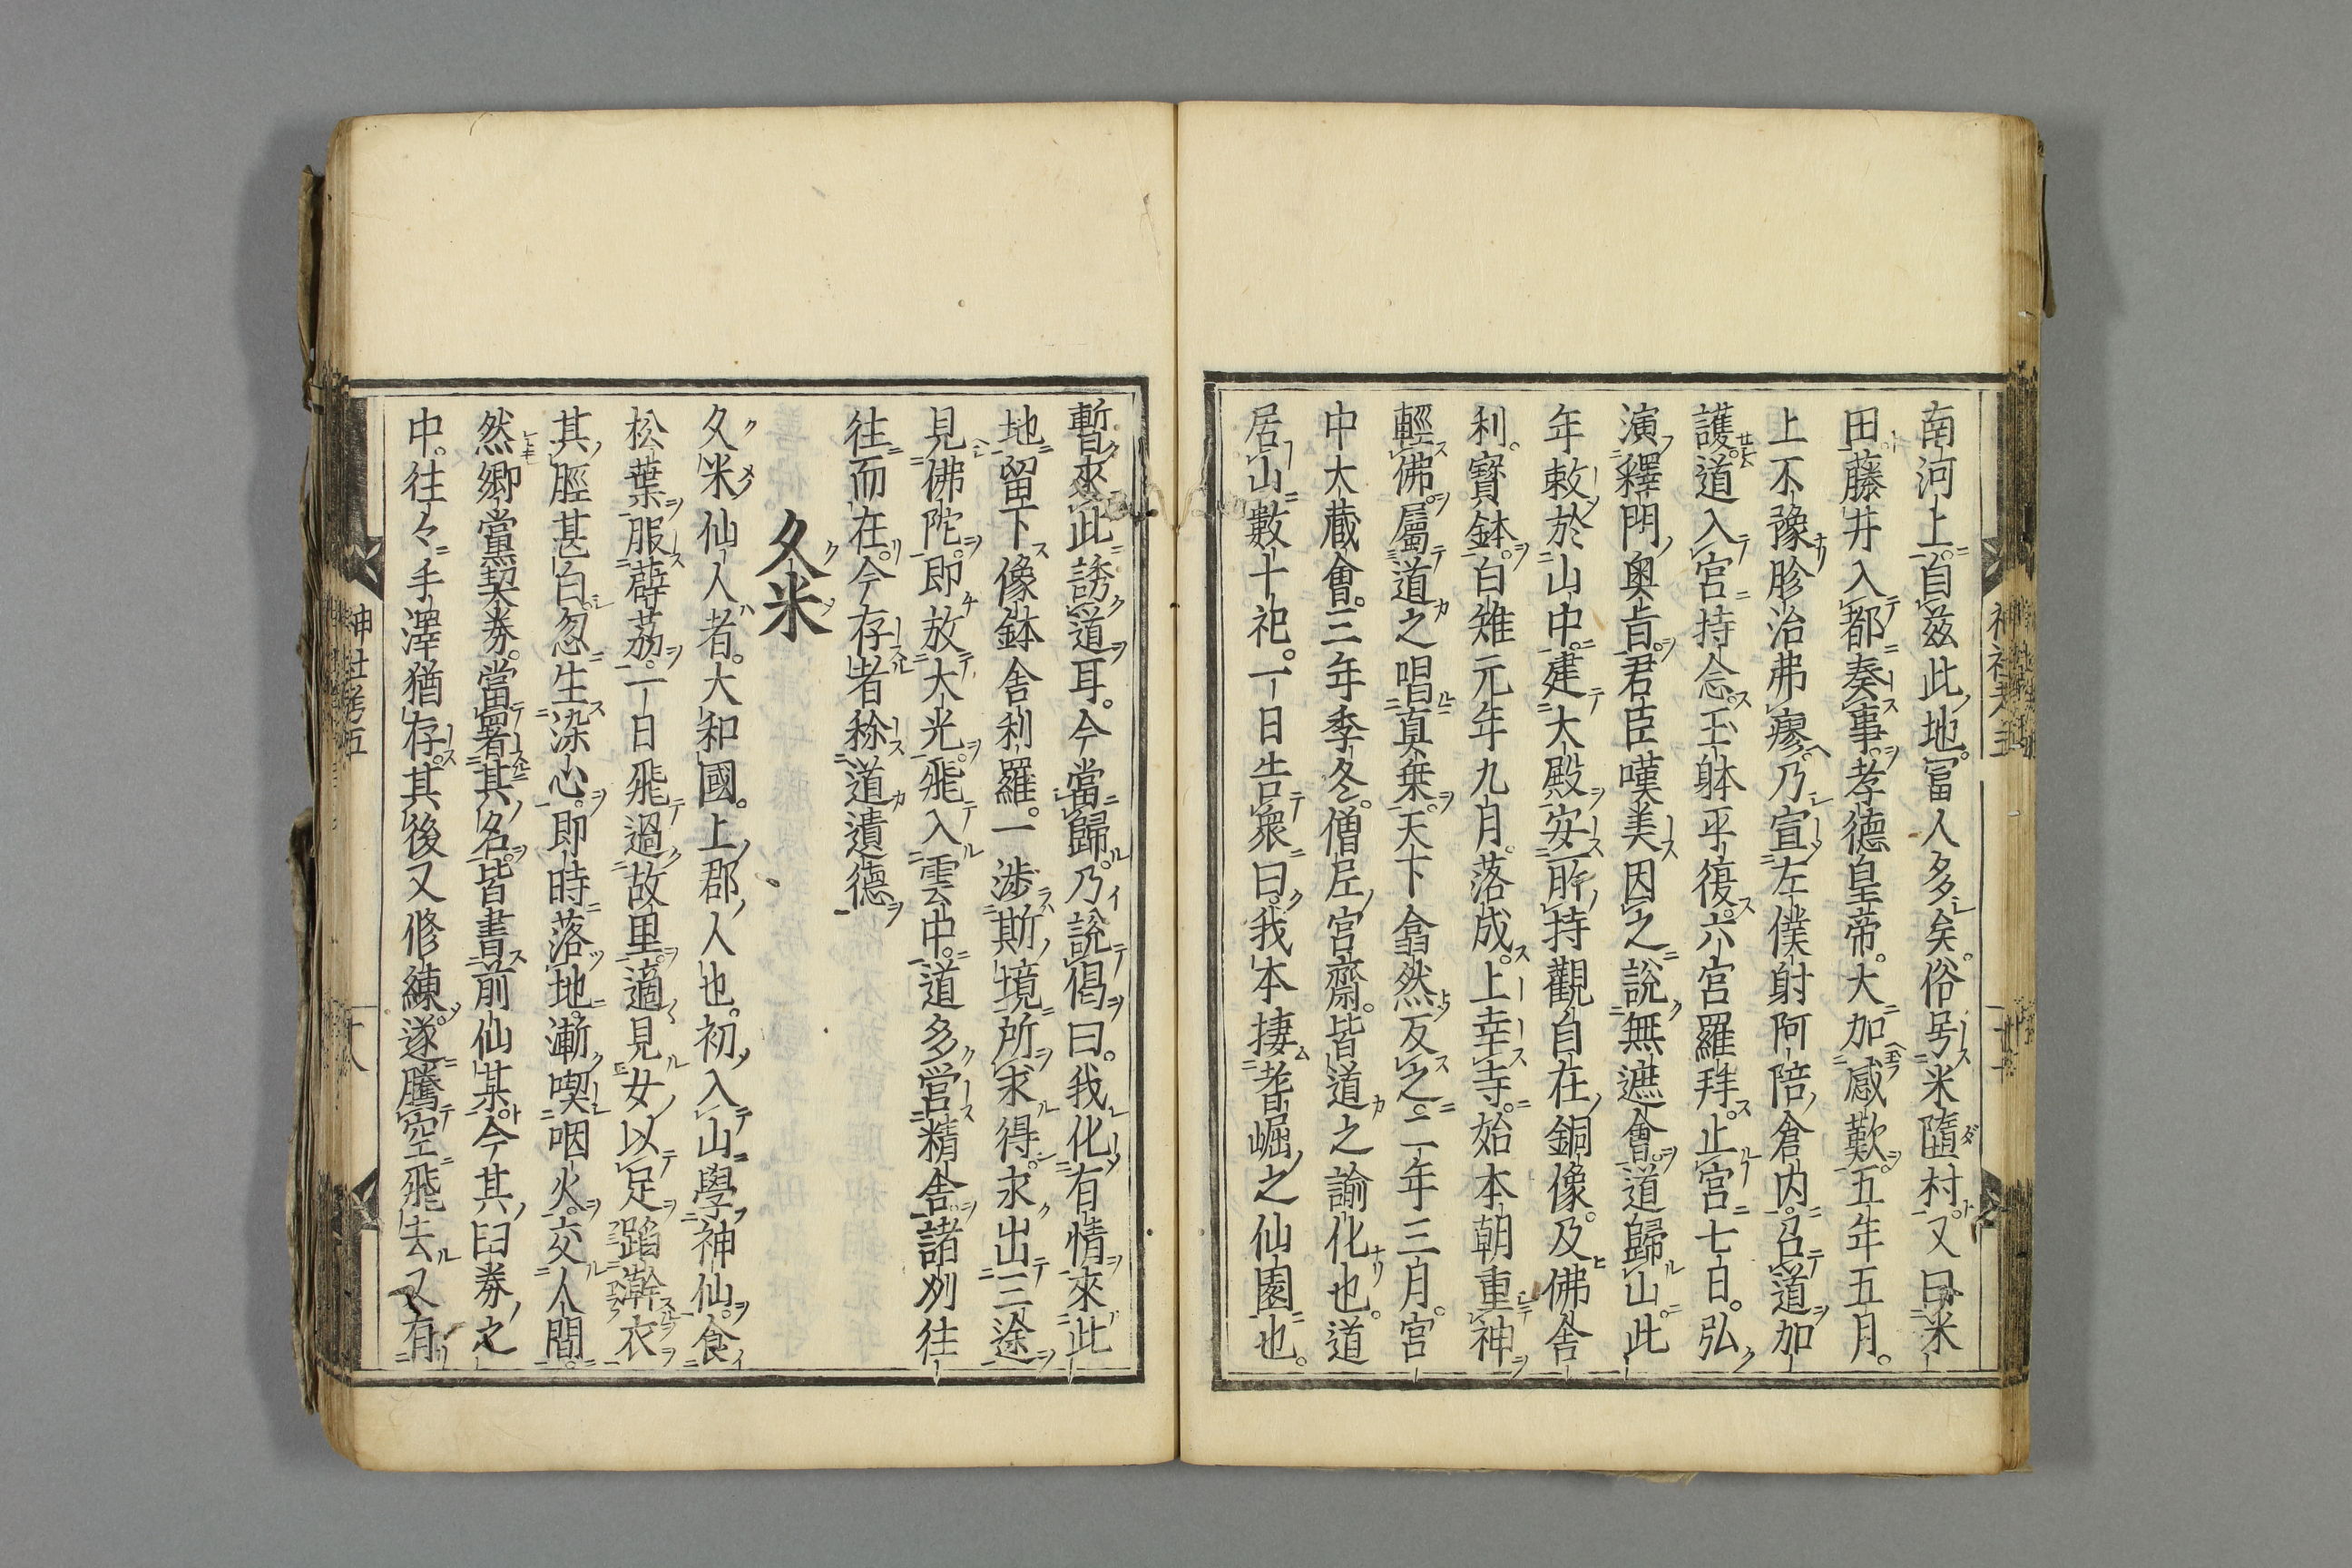 南河上。自茲此地。冨人多矣。俗号米隨村。又曰米
田。藤井入都奏事。孝德皇帝。大加感歎。五年五月。
上不豫胗治弗瘳。乃宣左僕射阿陪倉内。召道加
護。道入宮持念。玉躰平復。六宮羅拜。止宮七日。弘
演釋門奥旨。君臣嘆美因之說無遮會。道歸山。此
年敕於山中。建大殿安所持觀自在銅像。及佛舍
利。寳鉢。白雉元年九月。落成。上幸寺。始本朝重神
輕佛。屬道之唱真乗。天下翕然反之。二年三月。宮
中大藏會。三年季冬。僧尼宮齋。皆道之諭化也。道
居山數十祀。一日告衆曰。我本捿耆崛之仙園也。
暫來此誘道耳。今當歸。乃說偈曰。我化有情來此
地。留下像鉢舍利羅。一涉斯境所求得。永出三途
見佛陀。即放大光。飛入雲中。道多営精舍諸州往
往而在。今存者稱道遺德
久米
久米仙人者。大和國。上郡人也。初入山學神仙。食
松葉服薜茘。一日飛過故里。適見女以足蹈澣衣
其脛甚白。忽生染心。即時落地。漸喫咽火。交人間。
然郷黨契券。當署其名。皆書前仙某。今其臼券之
中。往々手澤猶存。其後又修練。遂騰空飛去又有
神社考五
十八